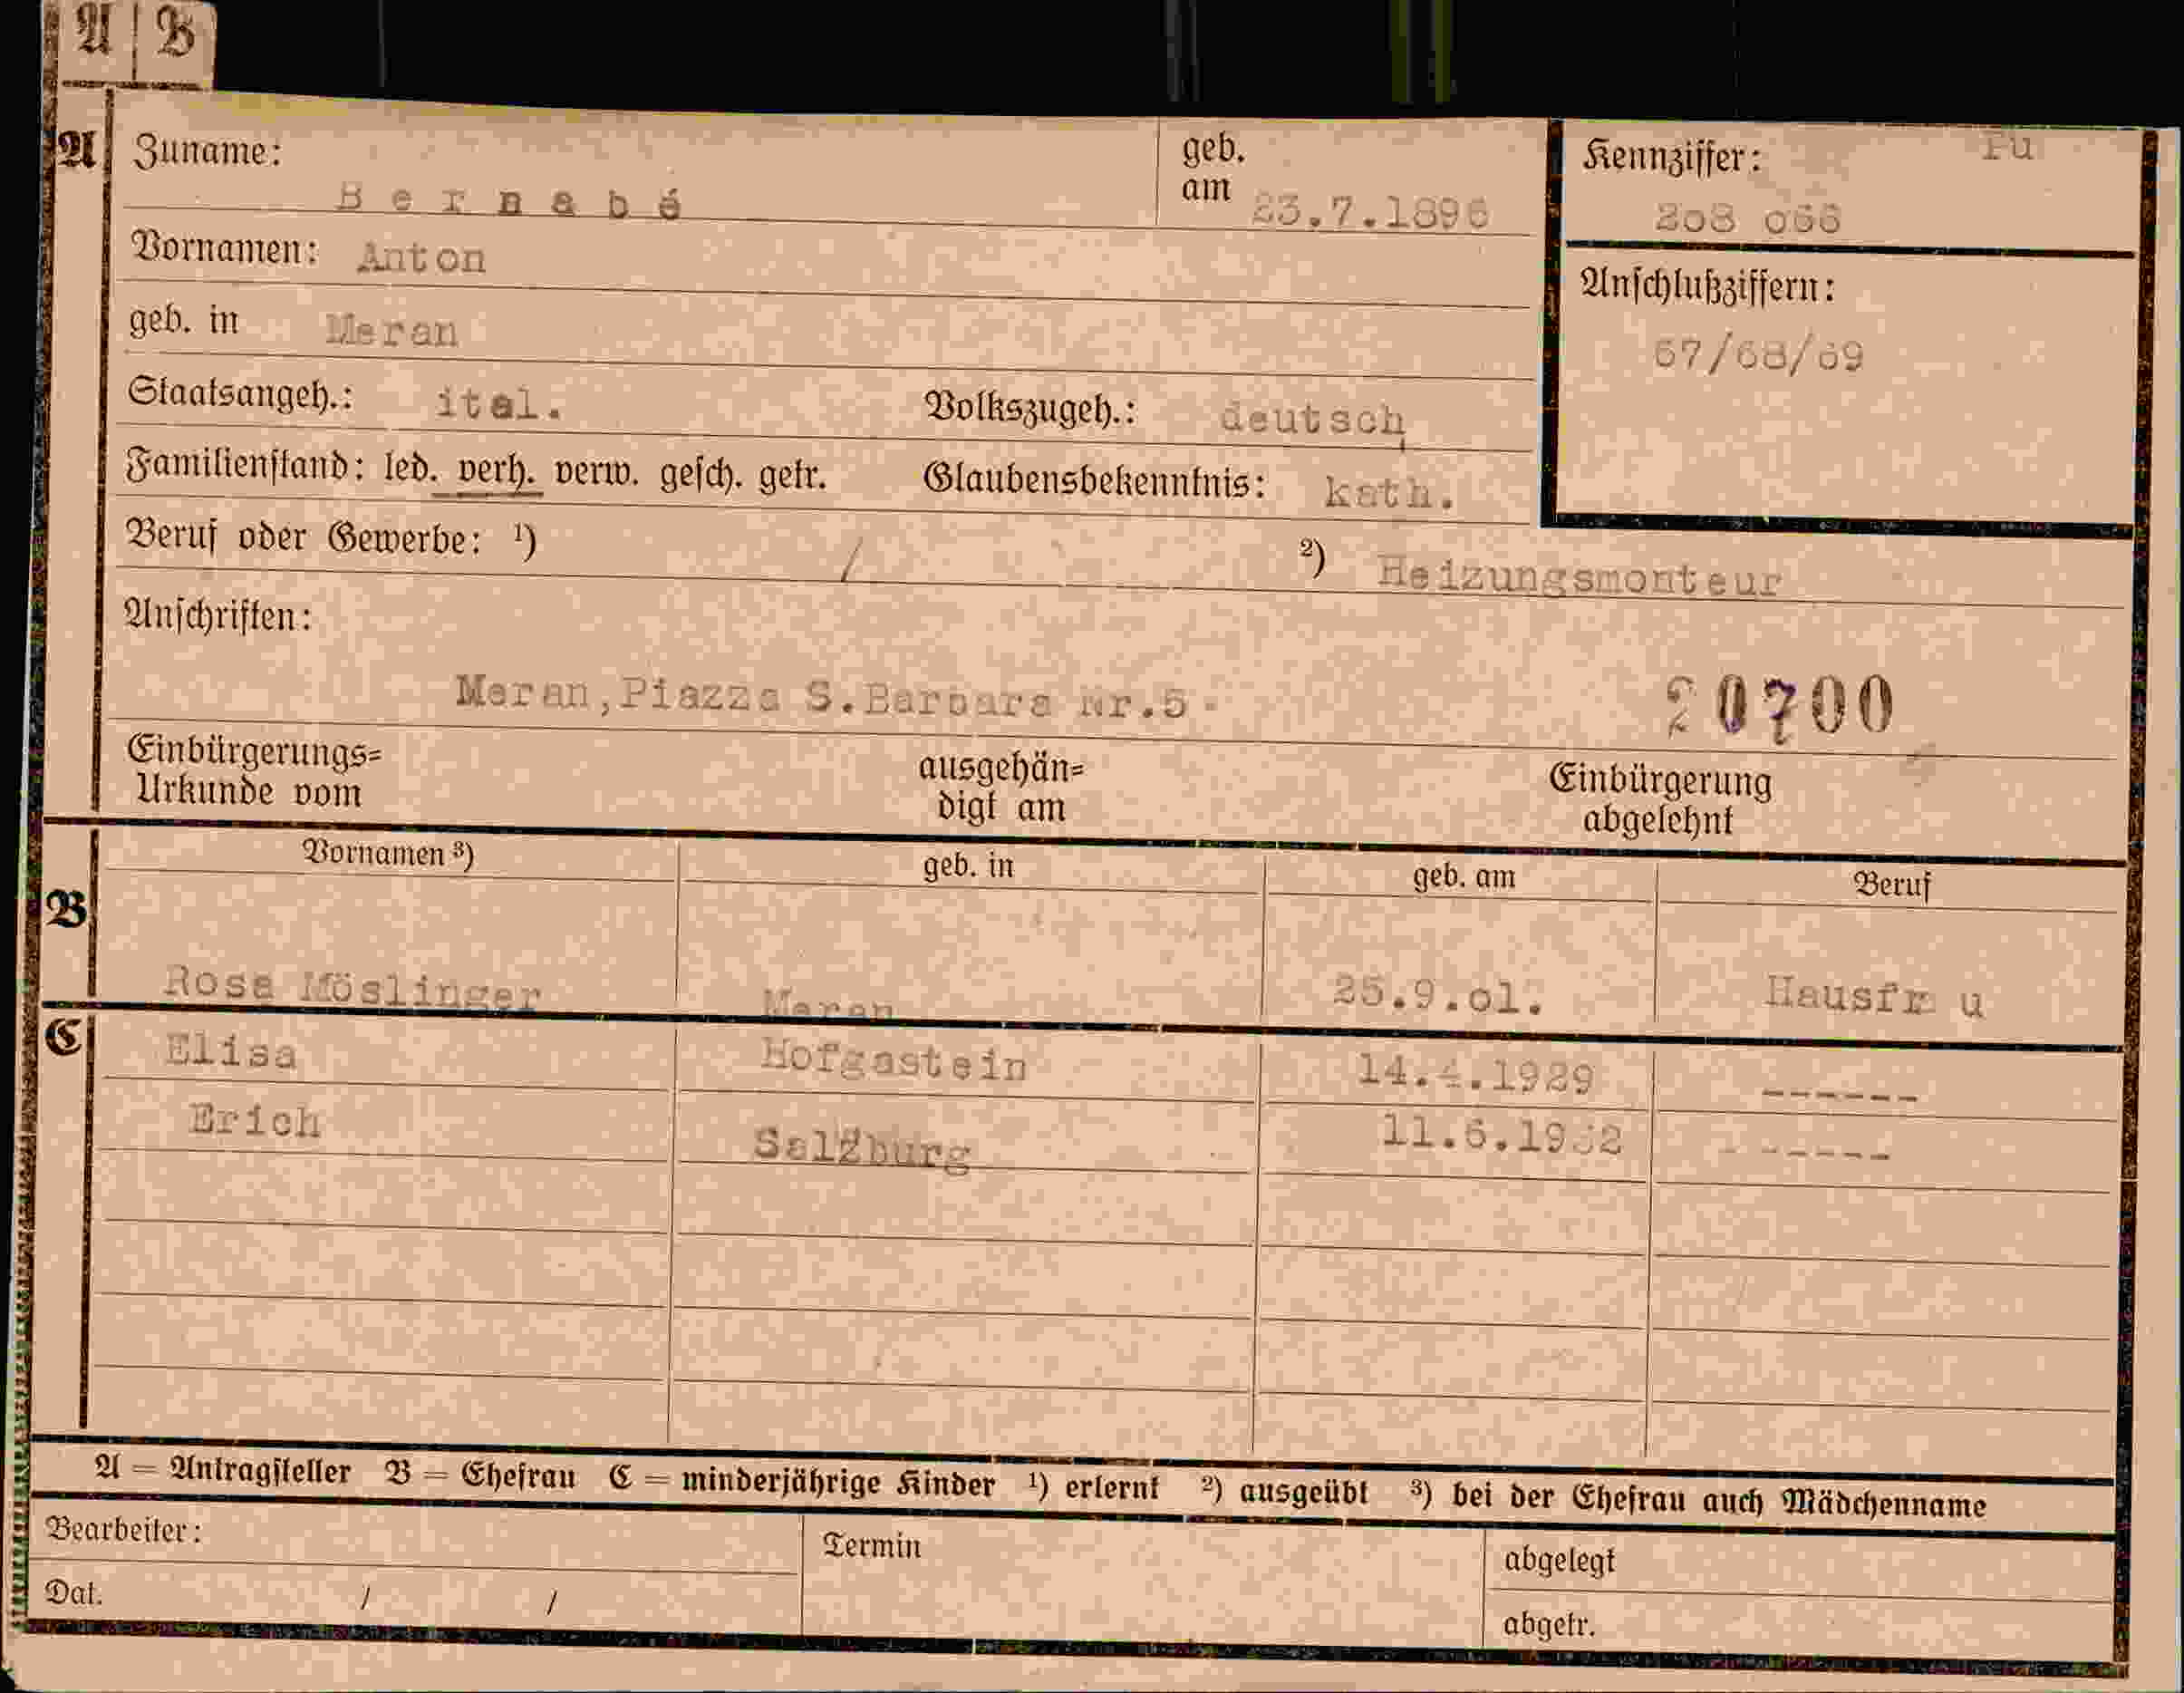 A | B
A
Zuname: Bernabé
geb. am 23.7.1896
Kennziffer: Fu
208 066
Vornamen: Anton
Anschlußziffern:
67/68/69
geb. in Meran
Staatsangeh.: ital. Volkszugeh.: deutsch
Familienstand: led. verh. verw. gesch. getr. Glaubensbekenntnis: kath.
Beruf oder Gewerbe: 1) / 2) Heizungsmonteur
Anschriften:
Meran,Piazza S.Barbara Nr.5-
20700
Einbürgerungs=
Urkunde vom
ausgehän=
digt am
Einbürgerung
abgelehnt
B
Vornamen 3) geb. in geb. am Beruf
Rosa Möslinger Meran 25.9.01. Hausfr u
C
Elisa Hofgastein 14.4.1929 ------
Erich Salzburg 11.6.1932 - -----
A = Antragsteller B = Ehefrau C = minderjährige Kinder 1) erlernt 2) ausgeübt 3) bei der Ehefrau auch Mädchenname
Bearbeiter:
Dat. / /
Termin
abgelegt
abgetr.